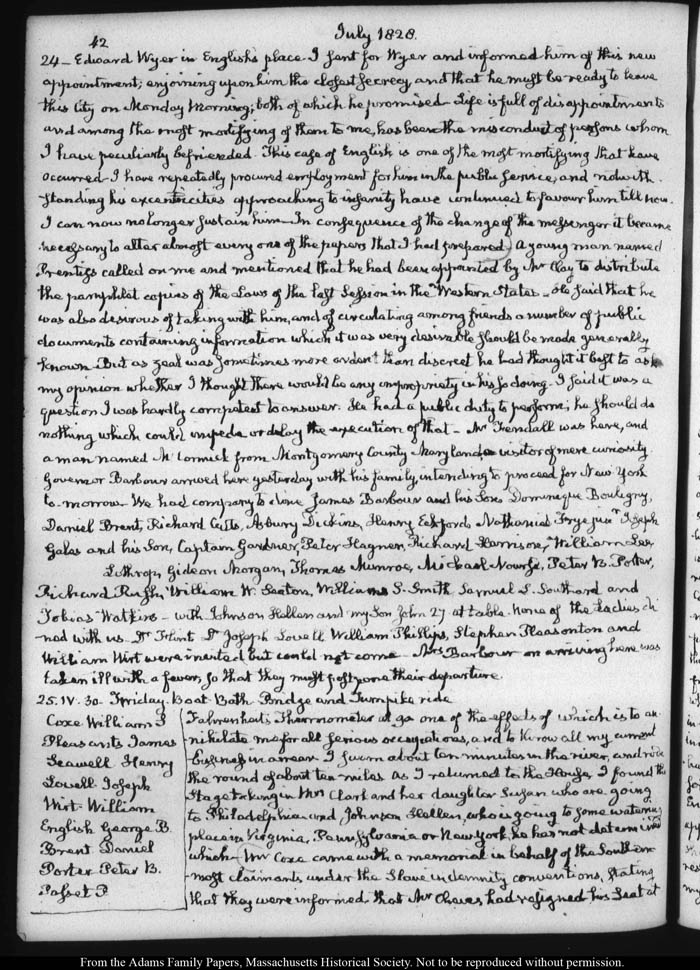 42
July 1828.
24 — Edward Wyer in English's place. I sent for Wyer and informed him of this new
appointment; enjoining upon him the closest secrecy, and that he must be ready to leave
this City on Monday Morning; both of which he promised — Life is full of disappointments
and among the most mortifying of them to me, has been the misconduct of persons whom
I have peculiarly befriended. This case of English is one of the most mortifying that have
occurred — I have repeatedly procured employment for him in the public service, and notwith-
standing his excentricities approaching to insanity have continued to favour him till now.
I can now no longer sustain him — In consequence of the change of the messenger it became
necessary to alter almost every one of the papers that I had prepared. A young man named
Prentiss called on me and mentioned that he had been appointed by Mr Clay to distribute
the pamphlet copies of the Laws of the last Session in the Western States — He said that he
was also desirous of taking with him, and of circulating among friends a number of public
documents containing information which it was very desirable should be made generally
known. But as zeal was sometimes more ardent than discreet he had thought it best to ask
my opinion whether I thought there would be any impropriety in his so doing — I said it was a
question I was hardly competent to answer. He had a public duty to perform; he should do
nothing which could impede or delay the execution of that — Mr Trendall was here, and
a man named McCormick from Montgomery County Maryland a visitor of mere curiosity
Governor Barbour arrived here yesterday with his family, intending to proceed for New York
to-morrow — We had company to dine James Barbour and his Son, Dominique Bouligny,
Daniel Brent, Richard Cutts, Asbury Dickins, Henry Eckford, Nathaniel Frye junr Joseph
Gales and his Son, Captain Gardner, Peter Hagner, Richard Harrison, William Lee,
Lothrop, Gideon Morgan, Thomas Munroe, Michael Nourse, Peter B. Porter,
Richard Rush, William W. Seaton, William S. Smith Samuel L. Southard and
Tobias Watkins — with Johnson Hellen and my Son John 27 at table. None of the Ladies di-
ned with us. Dr Flint Dr Joseph Lovell William Phillips, Stephen Pleasonton and
William Wirt were invited but could not come — Mrs Barbour on arriving here was
taken ill with a fever, so that they must postpone their departure.
25. IV. 30. Friday. Boat Bath Bridge and Turnpike ride
Coxe William S
Pleasants James
Seawell Henry
Lovell Joseph
Wirt William
English George B.
Brent Daniel
Porter Peter B.
P.
Fahrenheit's Thermometer at 90 one of the effects of which is to an-
nihilate me for all serious occupations, and to throw all my current
business in arrear. I swam about ten minutes in the river, and rode
the round of about ten miles as I returned to the House, I found the
Stage taking in Mrs Clark and her daughter Susan who are going
to Philadelphia and Johnson Hellen, who is going to some watering
place in Virginia, Pennsylvania or New York he has not determined
which — Mr Coxe came with a memorial in behalf of the Southern-
most claimants under the Slave indemnity conventions, stating
that they were informed that Mr Cheves had resigned his Seat at
From the Adams Family Papers, Massachusetts Historical Society. Not to be reproduced without permission.